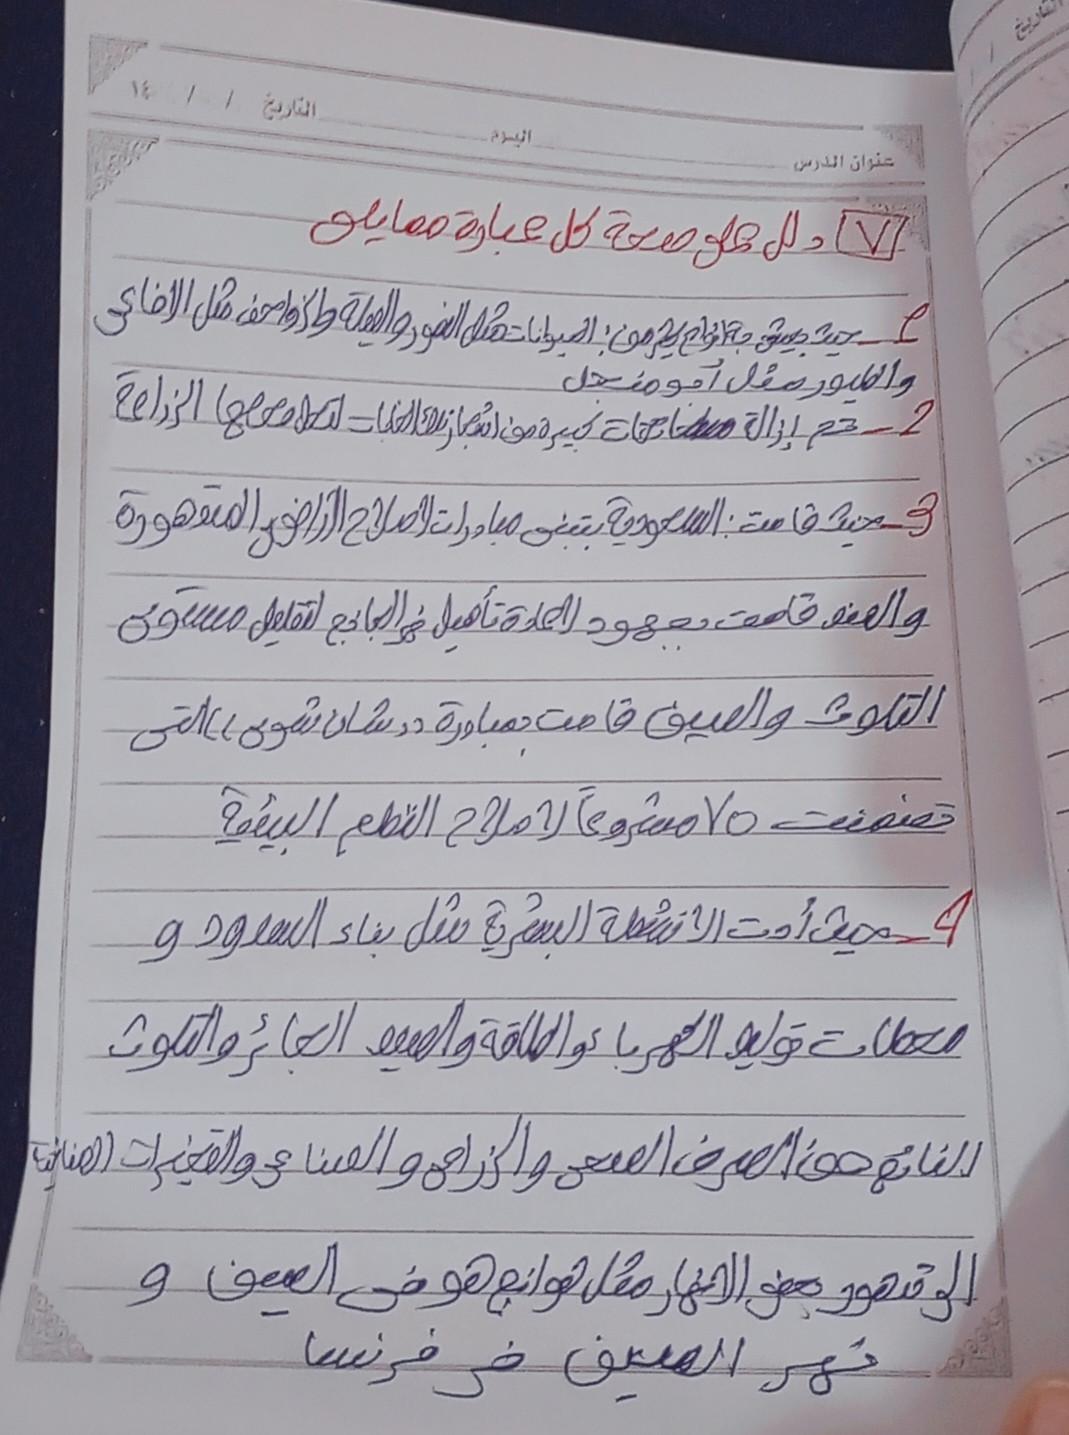 التاريخ / / ١٤
اليوم
عنوان الدرس
التاريخ / /
٧ دلل على صحة كل عبارة مما يلى
1_ حيث يعيش به انواع كثيرة من: الحيوانات مثل النمور والفيلة والزواحف مثل الافاعى
والطيور مثل أبو منجل
2_ تم إزالة مساحات كبيرة من اشجار تلك الغابات لتحل محلها الزراعة
3_ حيث قامت: السعودية بتبنى مبادرات لاصلاح الأراضى المتدهورة
والهند قامت بجهود لاعادة تأهيل نهر الجانج لتقليل مستوى
التلوث والصين قامت بمبادرة ((شان شوى)) التى
تضمنت ٧٥ مشروعاً لاصلاح النظم البيئية
4_ حيث أدت الانشطة البشرية مثل بناء السدود و
محطات توليد الكهرباء والطاقة والصيد الجائر والتلوث
الناتج من الصرف الصحى والزراعى والصناعى والتغيرات المناخية
الى تدهور بعض الانهار مثل هوانج هو فى الصين و
نهر السين فى فرنسا